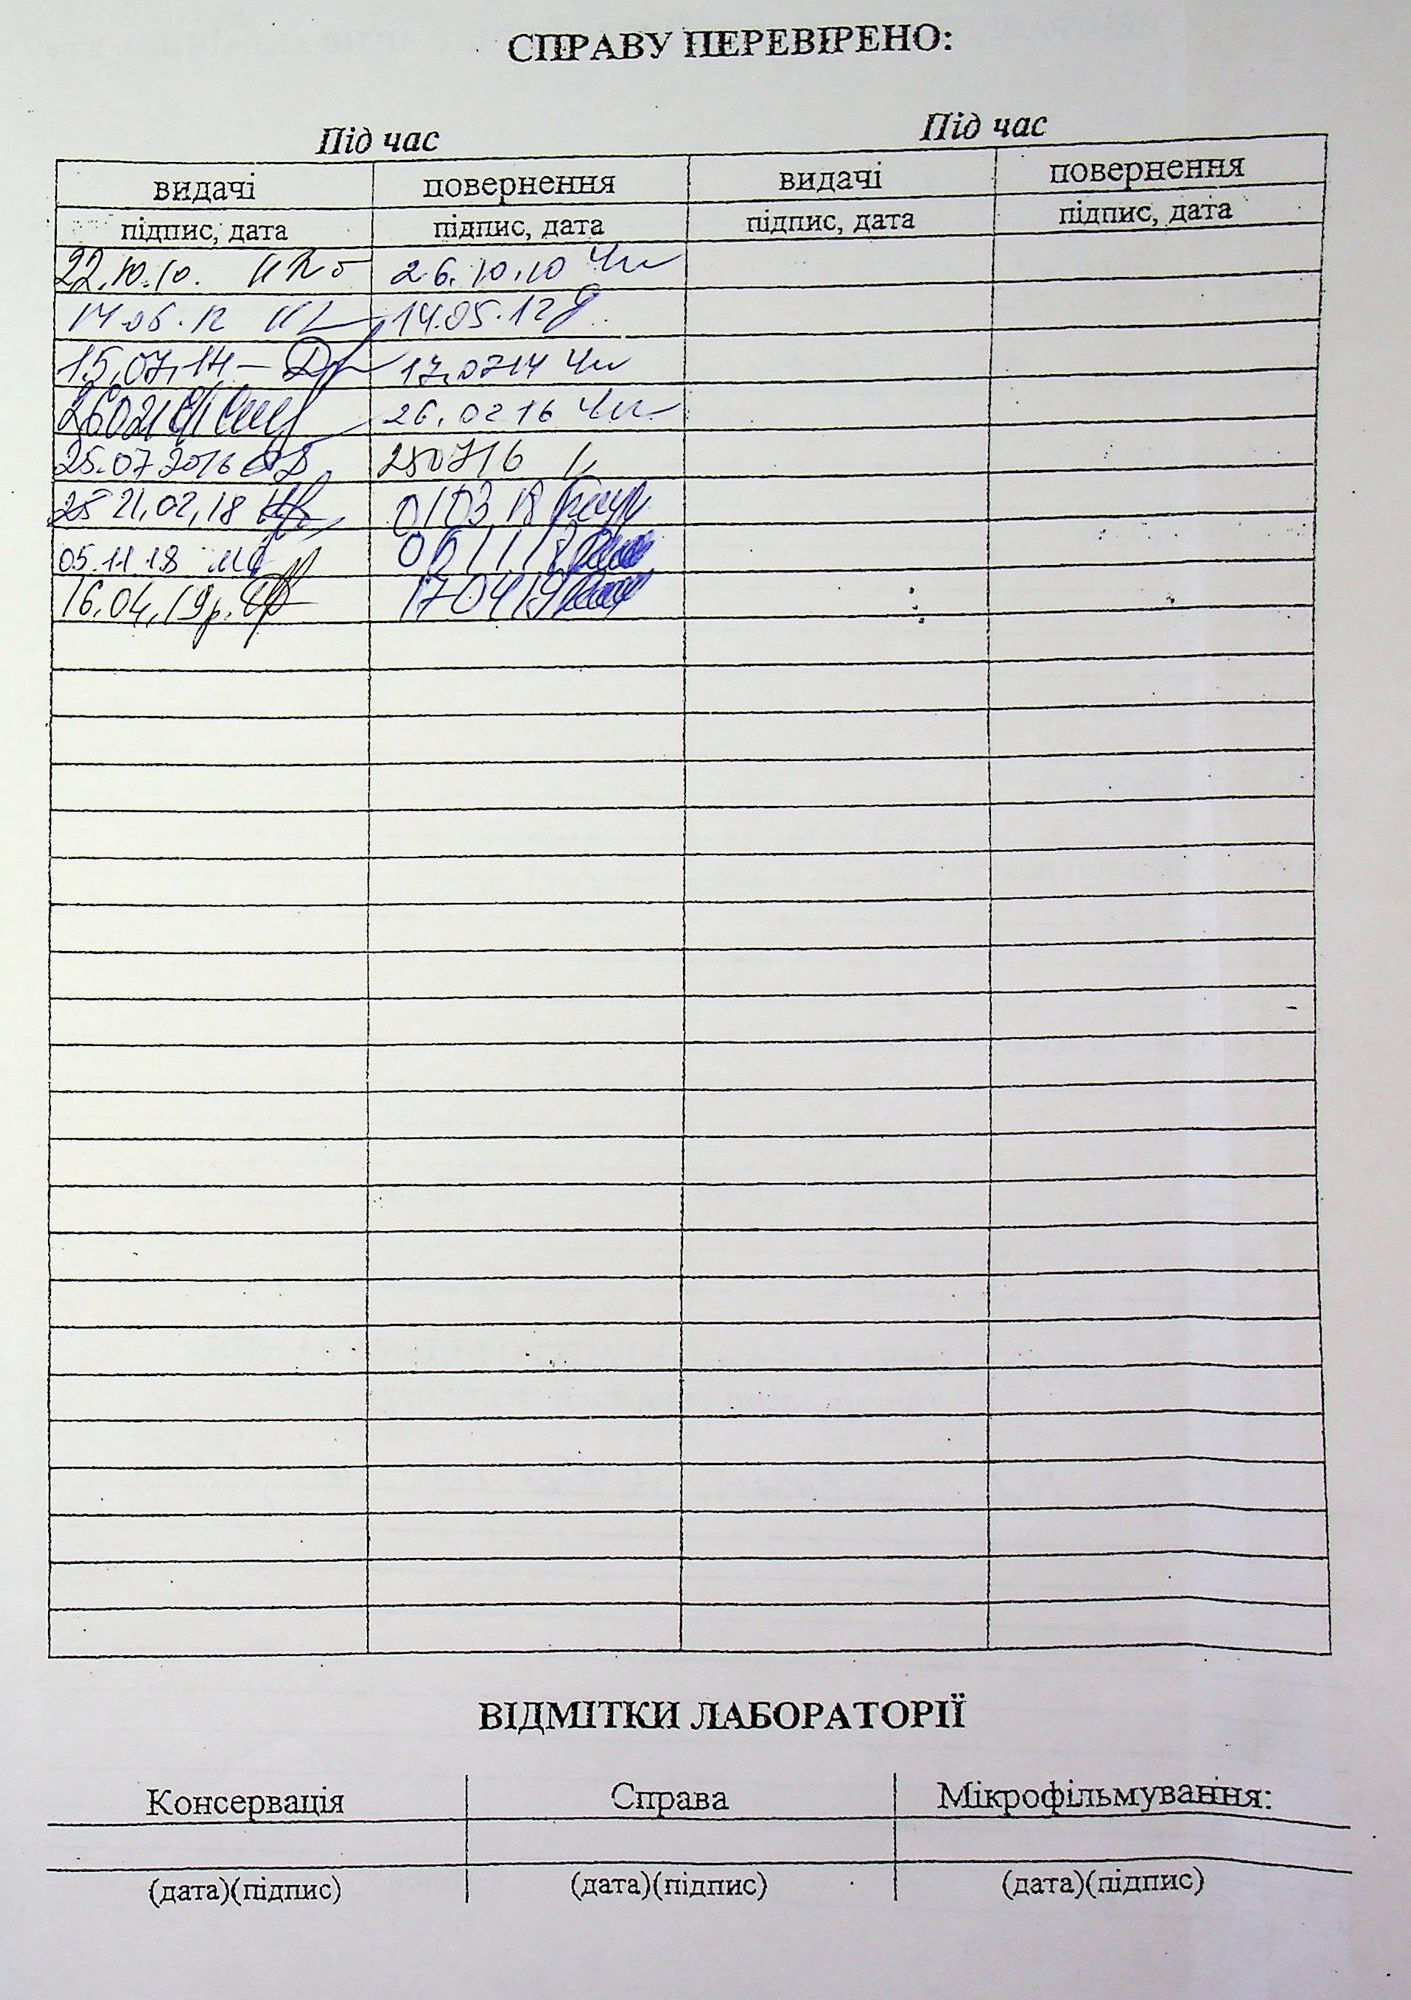 СПРАВУ ПЕРЕВІРЕНО:
Під час Під час
видачі повернення видачі повернення
підпис, дата підпис, дата підпис, дата підпис, дата
22.10.10. 26.10.10
14.05.12
15,07,14 – 17.0714
26.0216
25.07 2016 250716
25 21,02,18 010318
05.11.18 061118
16.04,19р. 170419
ВІДМІТКИ ЛАБОРАТОРІЇ
Консервація Справа Мікрофільмування:
(дата)(підпис) (дата)(підпис) (дата)(підпис)